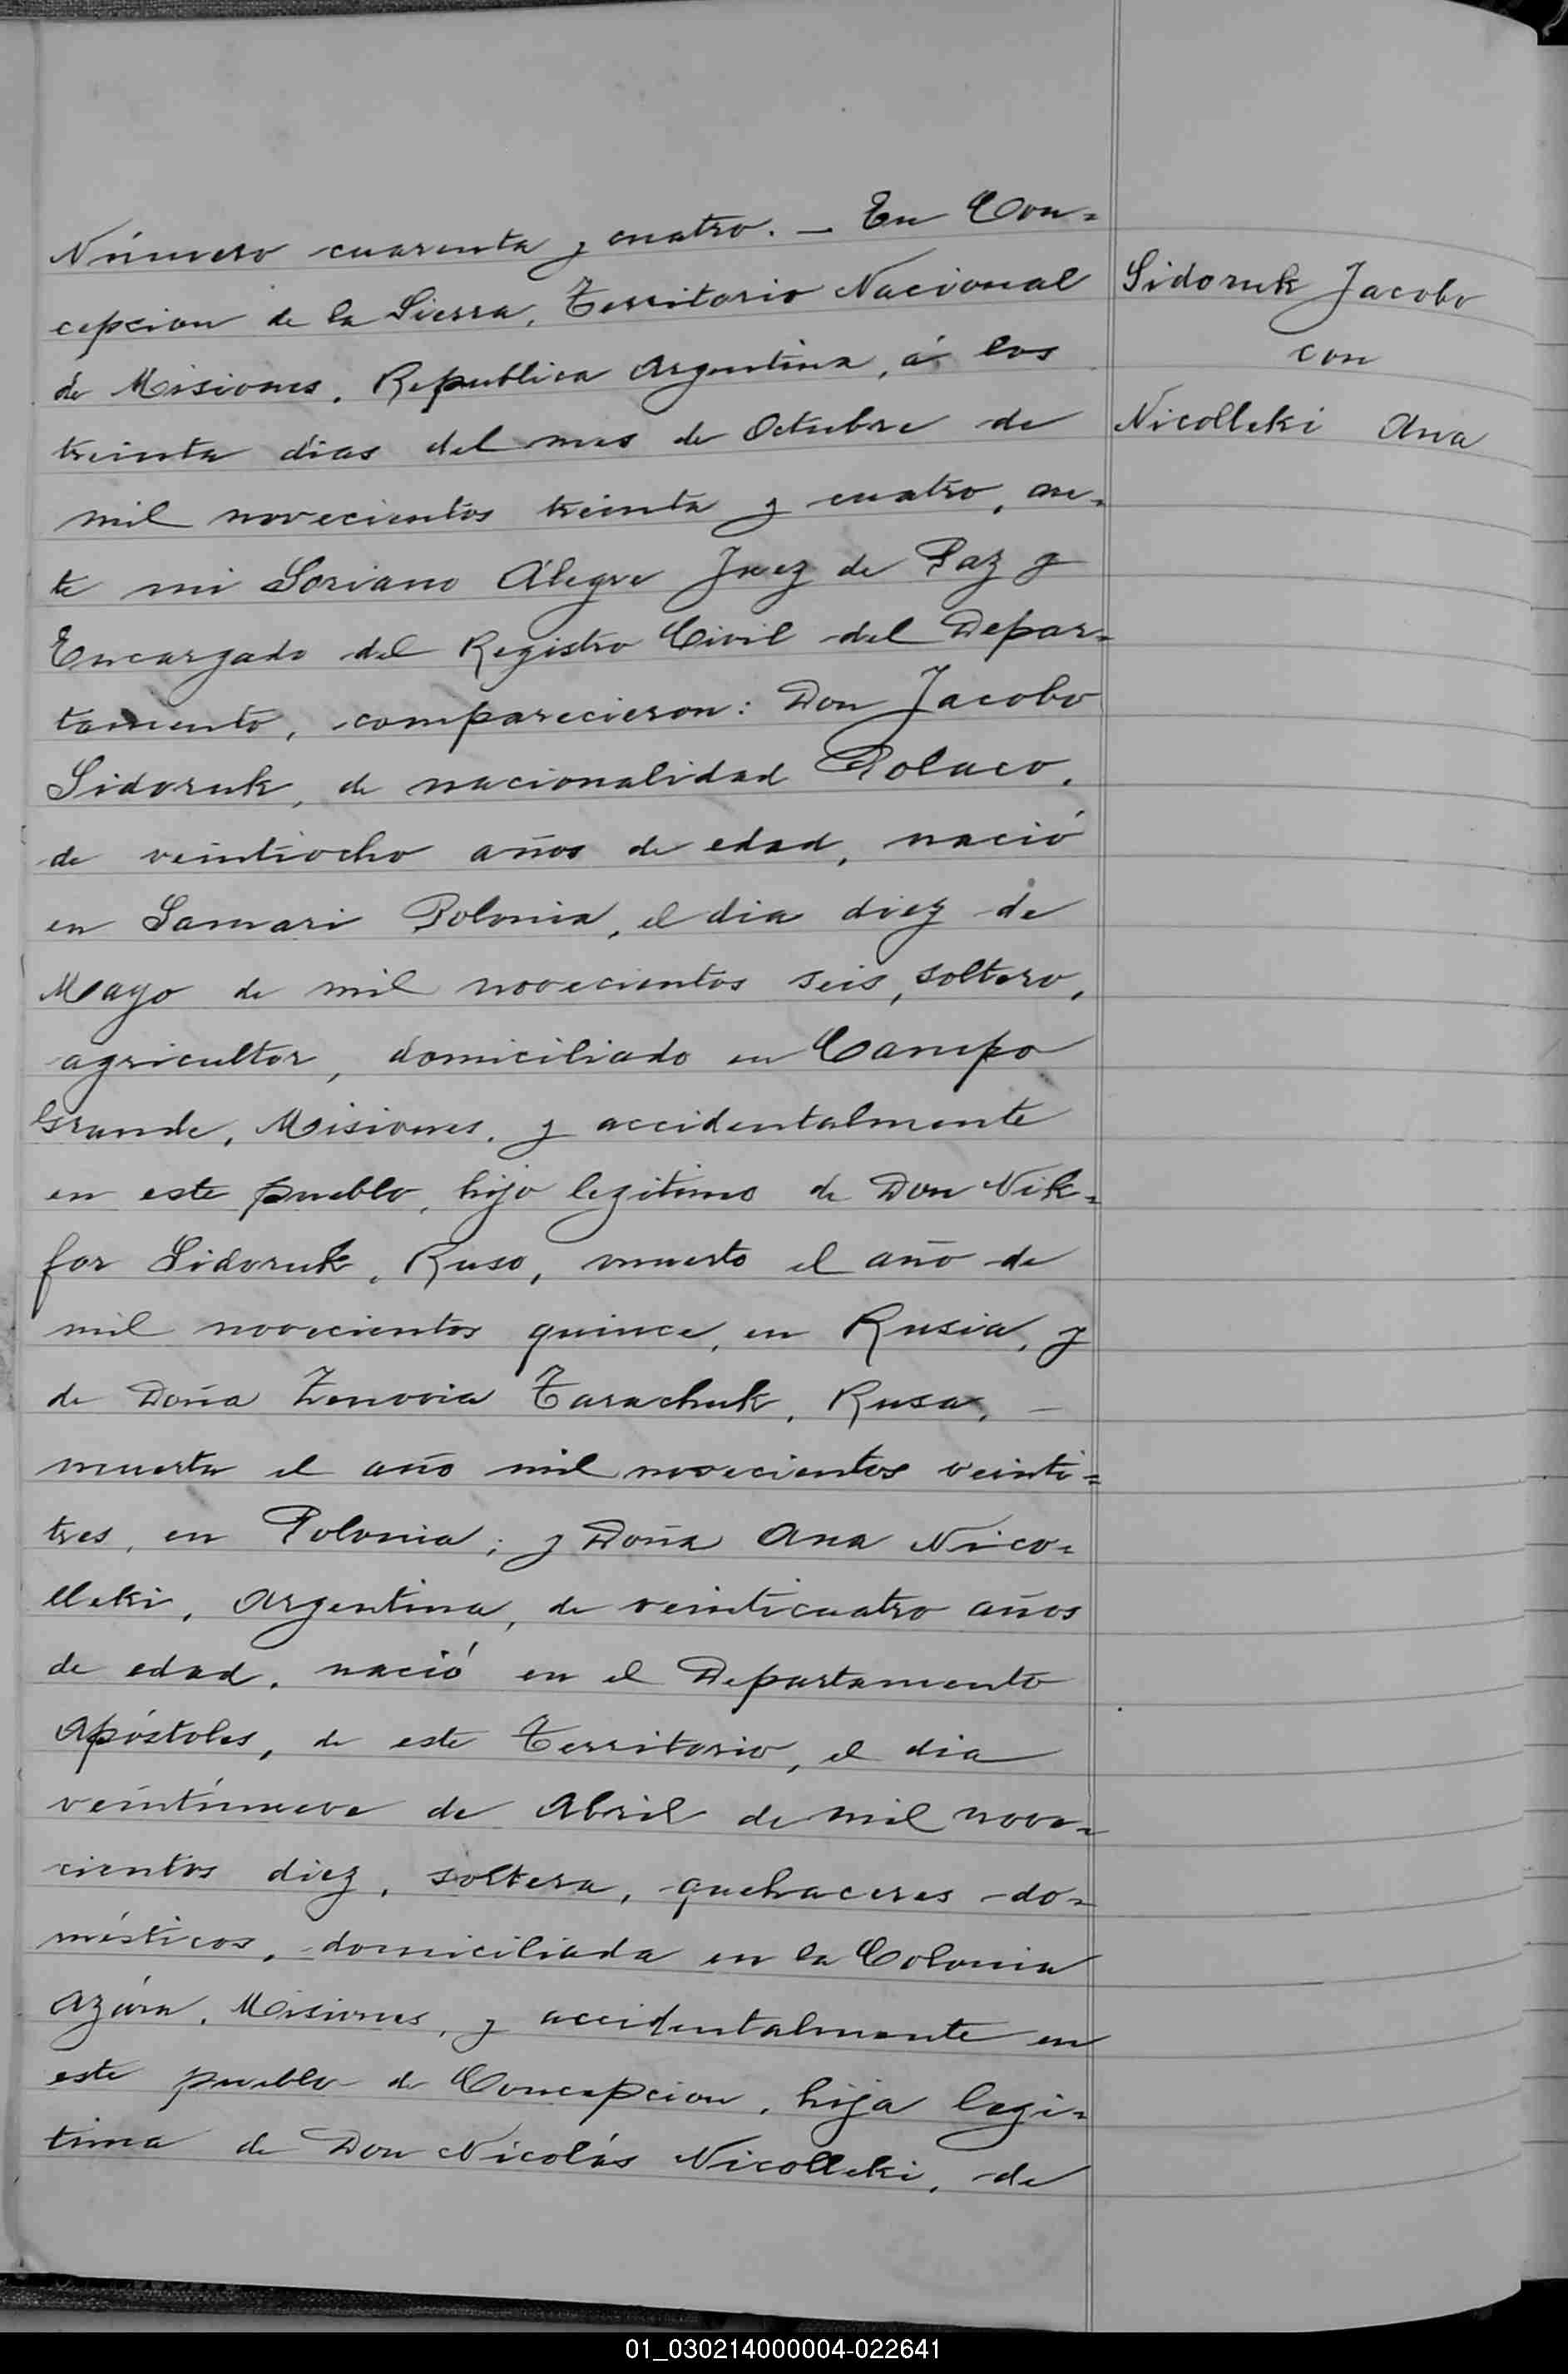 Número cuarenta y cuatro. — En Con=
cepcion de la Sierra, Territorio Nacional
de Misiones, Republica Argentina, á los
treinta dias del mes de Octubre de
mil novecientos treinta y cuatro, an-
te mi Soriano Alegre Juez de Paz y
Encargado del Registro Civil del Depar=
tamento, comparecieron: Don Jacobo
Sidoruk, de nacionalidad Polaco,
de veintiocho años de edad, nació
en Samari Polonia, el dia diez de
Mayo de mil novecientos seis, soltero,
agricultor, domiciliado en Campo
Grande, Misiones, y accidentalmente
en este pueblo, hijo legitimo de Don Nik=
for Sidoruk, Ruso, muerto el año de
mil novecientos quince, en Rusia, y
de Doña Zenovia Tarachuk, Rusa, —
muerta el año mil novecientos veinti=
tres, en Polonia; y Doña Ana Nico=
lleki, Argentina, de veinticuatro años
de edad, nació en el Departamento
Apóstoles, de este Territorio, el dia
veintinueve de Abril de mil nove=
cientos diez, soltera, quehaceres do=
mésticos, domiciliada en la Colonia
Azára, Misiones, y accidentalmente en
este pueblo de Concepcion, hija legi=
tima de Don Nicolás Nicolleki, de
Sidoruk Jacobo
con
Nicolleki Ana
01_030214000004-022641